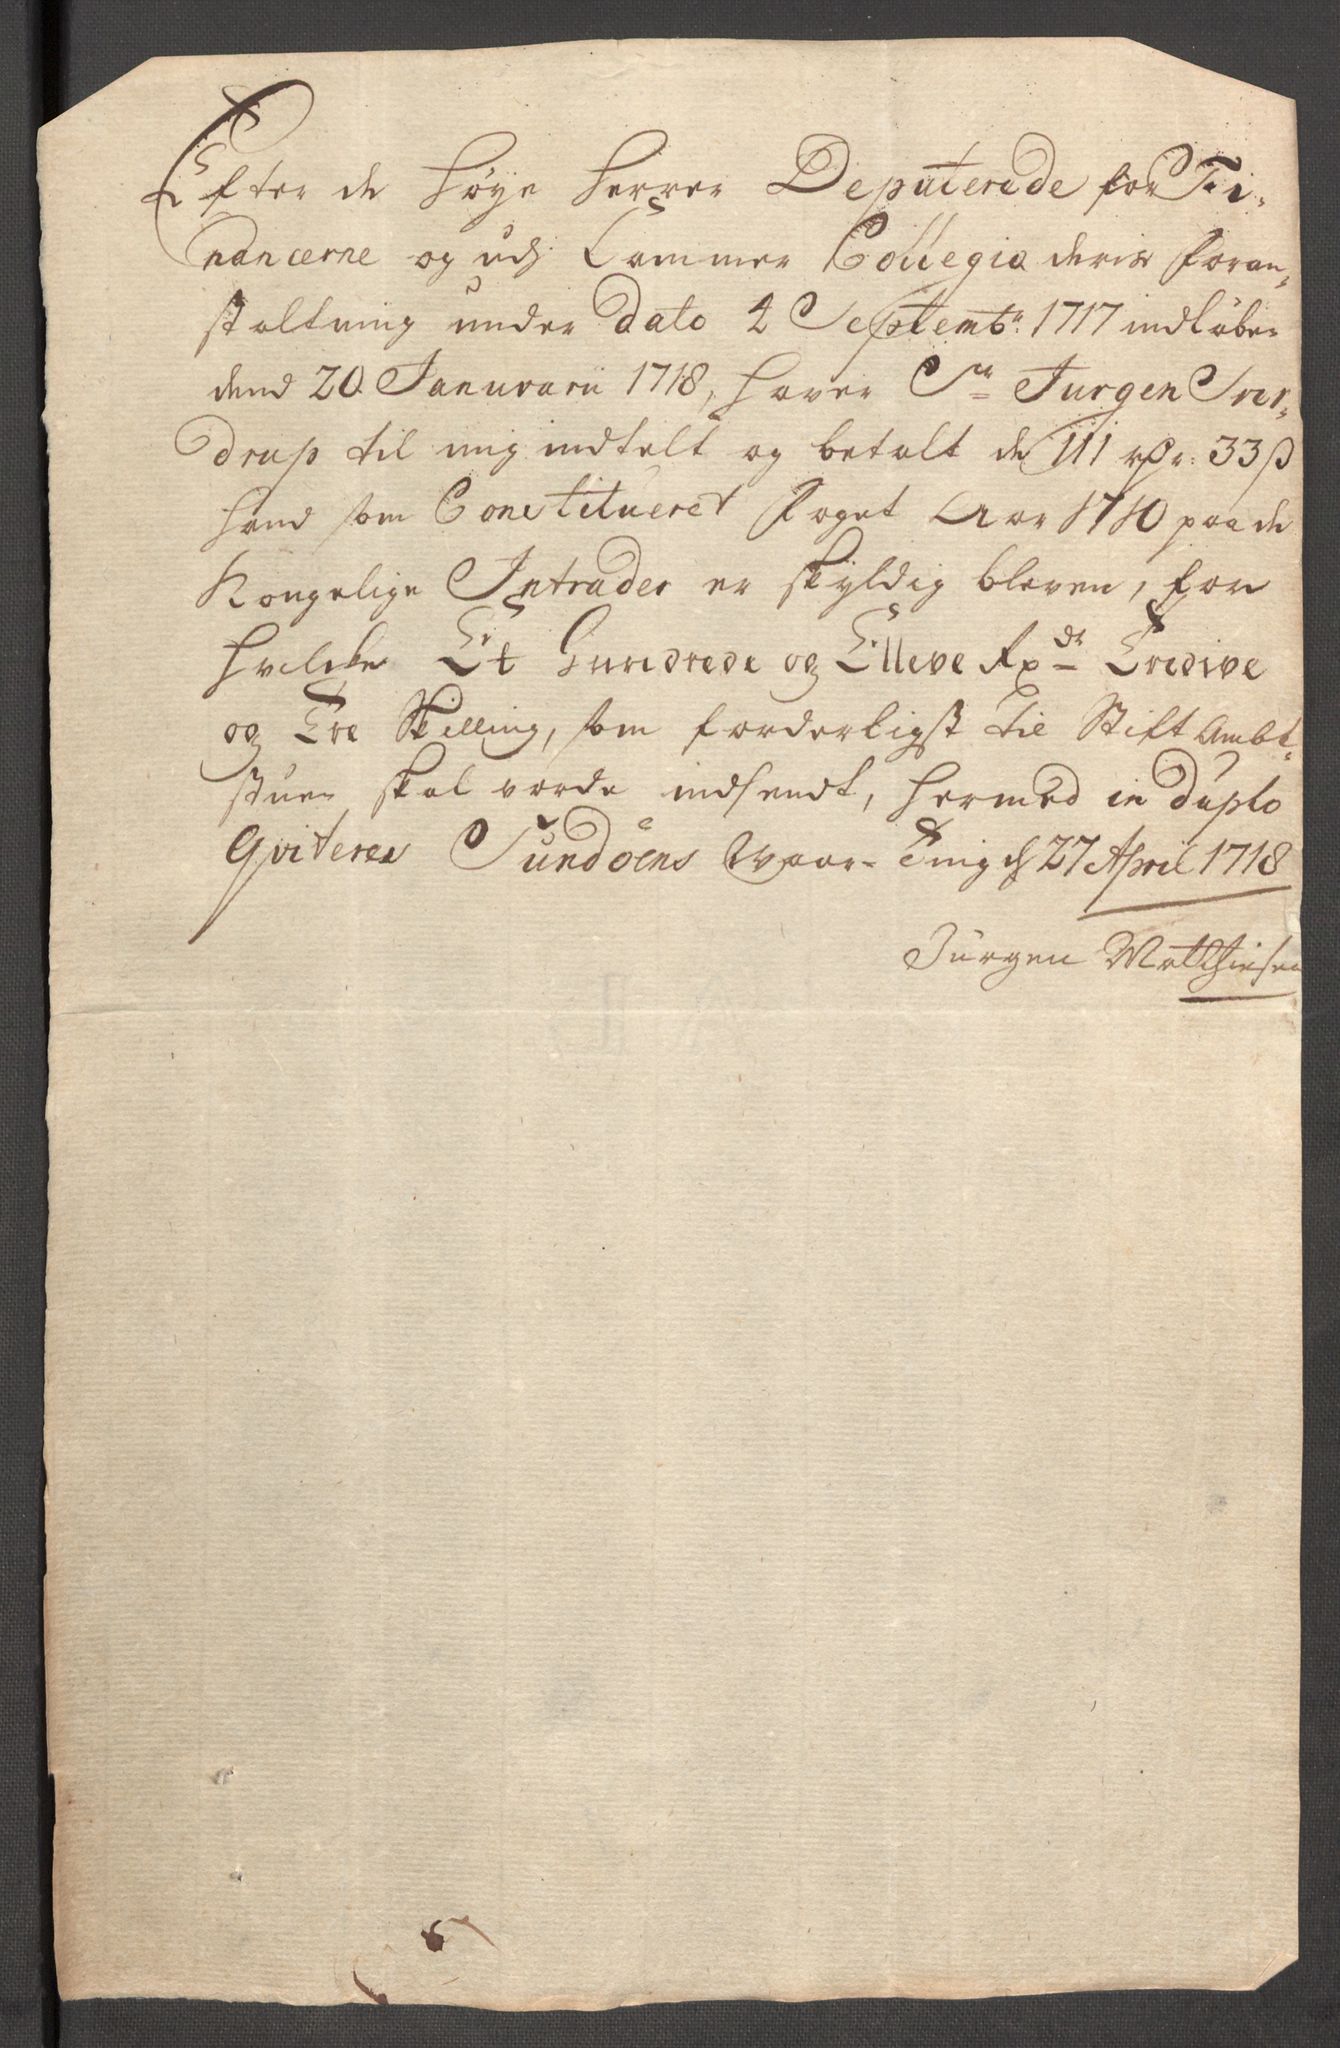 Efter de høye herrer Deputerede for Fi-
nancerne og udj Cammer Collegio deris Foran-
staltning under Dato 4 Septembr: 1717 indløbe-
dend 20 Januvarii 1718, haver Sr Jurgen Sver-
drup til mig indtelt og betalt de 111 rdr: 33 ß
hand som Constitueret Foget Aar 1710 paa de
Kongelige Intrader er skyldig bleven, for
hvilcke Et Hundrede og Elleve Rxdr Tredive
og Tre Skilling, som forderligst til Stift Ambt-
stuen skal vorde indsendt, hermed in Duplo
Qviteres Sundöens Waar-Ting d 27 April 1718
Jürgen Matthiesen